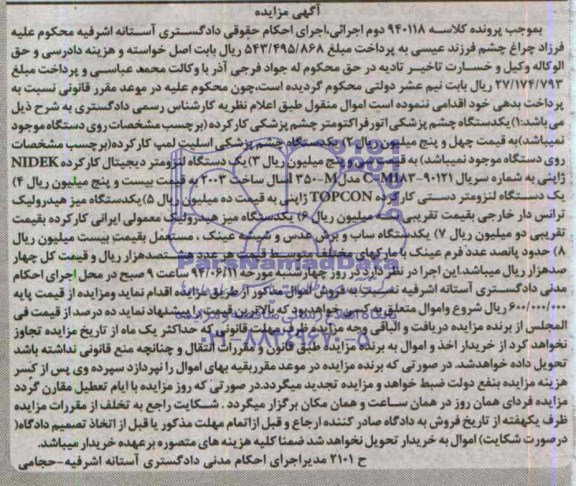 آگهی مزایده
بموجب پرونده کلاسه ۹۴۰۱۱۸ دوم اجرائی،اجرای احکام حقوقی دادگستری آستانه اشرفیه محکوم علیه
فرزاد چراغ چشم فرزند عیسی به پرداخت مبلغ ۵۴۳/۴۹۵/۸۶۸ ریال بابت اصل خواسته و هزینه دادرسی و حق
الوکاله وکیل و خسارت تاخیر تادیه در حق محکوم له جواد فرجی آذر با وکالت محمد عباسی و پرداخت مبلغ
۲۷/۱۷۴/۷۹۳ ریال بابت نیم عشر دولتی محکوم گردیده است،چون محکوم علیه در موعد مقرر قانونی نسبت به
پرداخت بدهی خود اقدامی ننموده است اموال منقول طبق اعلام نظریه کارشناس رسمی دادگستری به شرح ذیل
می باشد:۱) یکدستگاه چشم پزشکی اتورفراکتومتر چشم پزشکی کارکرده (برچسب مشخصات روی دستگاه موجود
نمیباشد) به قیمت چهل و پنج میلیون ریال ۲) یکدستگاه چشم پزشکی اسلیت لمپ کارکرده(برچسب مشخصات
روی دستگاه موجود نمیباشد) به قیمت سی و پنج میلیون ریال ۳) یک دستگاه لنزومتر دیجیتال کارکرده NIDEK
ژاپنی به شماره سریال ۹۰۱۲۱-C-M۱۸۳ مدل ۳۵۰۰M سال ساخت ۲۰۰۳ به قیمت بیست و پنج میلیون ریال ۴)
یک دستگاه لنزومتر دستی کارکرده TOPCON ژاپنی به قیمت ده میلیون ریال ۵) یکدستگاه میز هیدرولیک
ترانس دار خارجی بقیمت تقریبی میلیون ریال ۶) یکدستگاه میز هیدرولیک معمولی ایرانی کارکرده بقیمت
تقریبی دو میلیون ریال ۷) یکدستگاه ساب و برش عدس و شیشه عینک ، مستعمل بقیمت بیست میلیون ریال
۸) حدود پانصد عدد فرم عینک با مارکهای مختلف متوسط قیمت هر عدد هشتصدهزار ریال و قیمت کل چهار
صدهزار ریال میباشد.این اجرا در نظر دارد در روز چهارشنبه مورخه ۹۴/۰۶/۱۱ ساعت ۹ صبح در محل اجرای احکام
مدنی دادگستری آستانه اشرفیه نسبت به فروش اموال مذکور از طریق مزایده اقدام نماید ومزایده از قیمت پایه
۶۰۰/۰۰۰/۰۰۰ ریال شروع واموال متعلق به کسی خواهد بود که بالاترین قیمت را پیشنهاد نماید ده درصد از قیمت فی
المجلس از برنده مزایده دریافت و الباقی وجه مزایده ظرف مهلت قانونی که حداکثر یک ماه از تاریخ مزایده تجاوز
نخواهد کرد از خریدار اخذ و اموال به برنده مزایده طبق قانون و مقررات انتقال و چنانچه منع قانونی نداشته باشد
تحویل داده خواهدشد. در صورتی که برنده مزایده در موعد مقرربقیه بهای اموال را نپردازد سپرده وی پس از کسر
هزینه مزایده بنفع دولت ضبط خواهد و مزایده تجدید میگردد.در صورتی که روز مزایده با ایام تعطیل مقارن گردد
مزایده فردای همان روز در همان ساعت و همان مکان برگزار میگردد . شکایت راجع به تخلف از مقررات مزایده
ظرف یکهفته از تاریخ فروش به دادگاه صادر کننده ارجاع و قبل ازاتمام مهلت مذکور یا قبل از اتخاذ تصمیم دادگاه(
درصورت شکایت) اموال به خریدار تحویل نخواهد شد ضمنا کلیه هزینه های متصوره برعهده خریدار میباشد.
ح ۲۱۰۱ مدیراجرای احکام مدنی دادگستری آستانه اشرفیه-حجامی